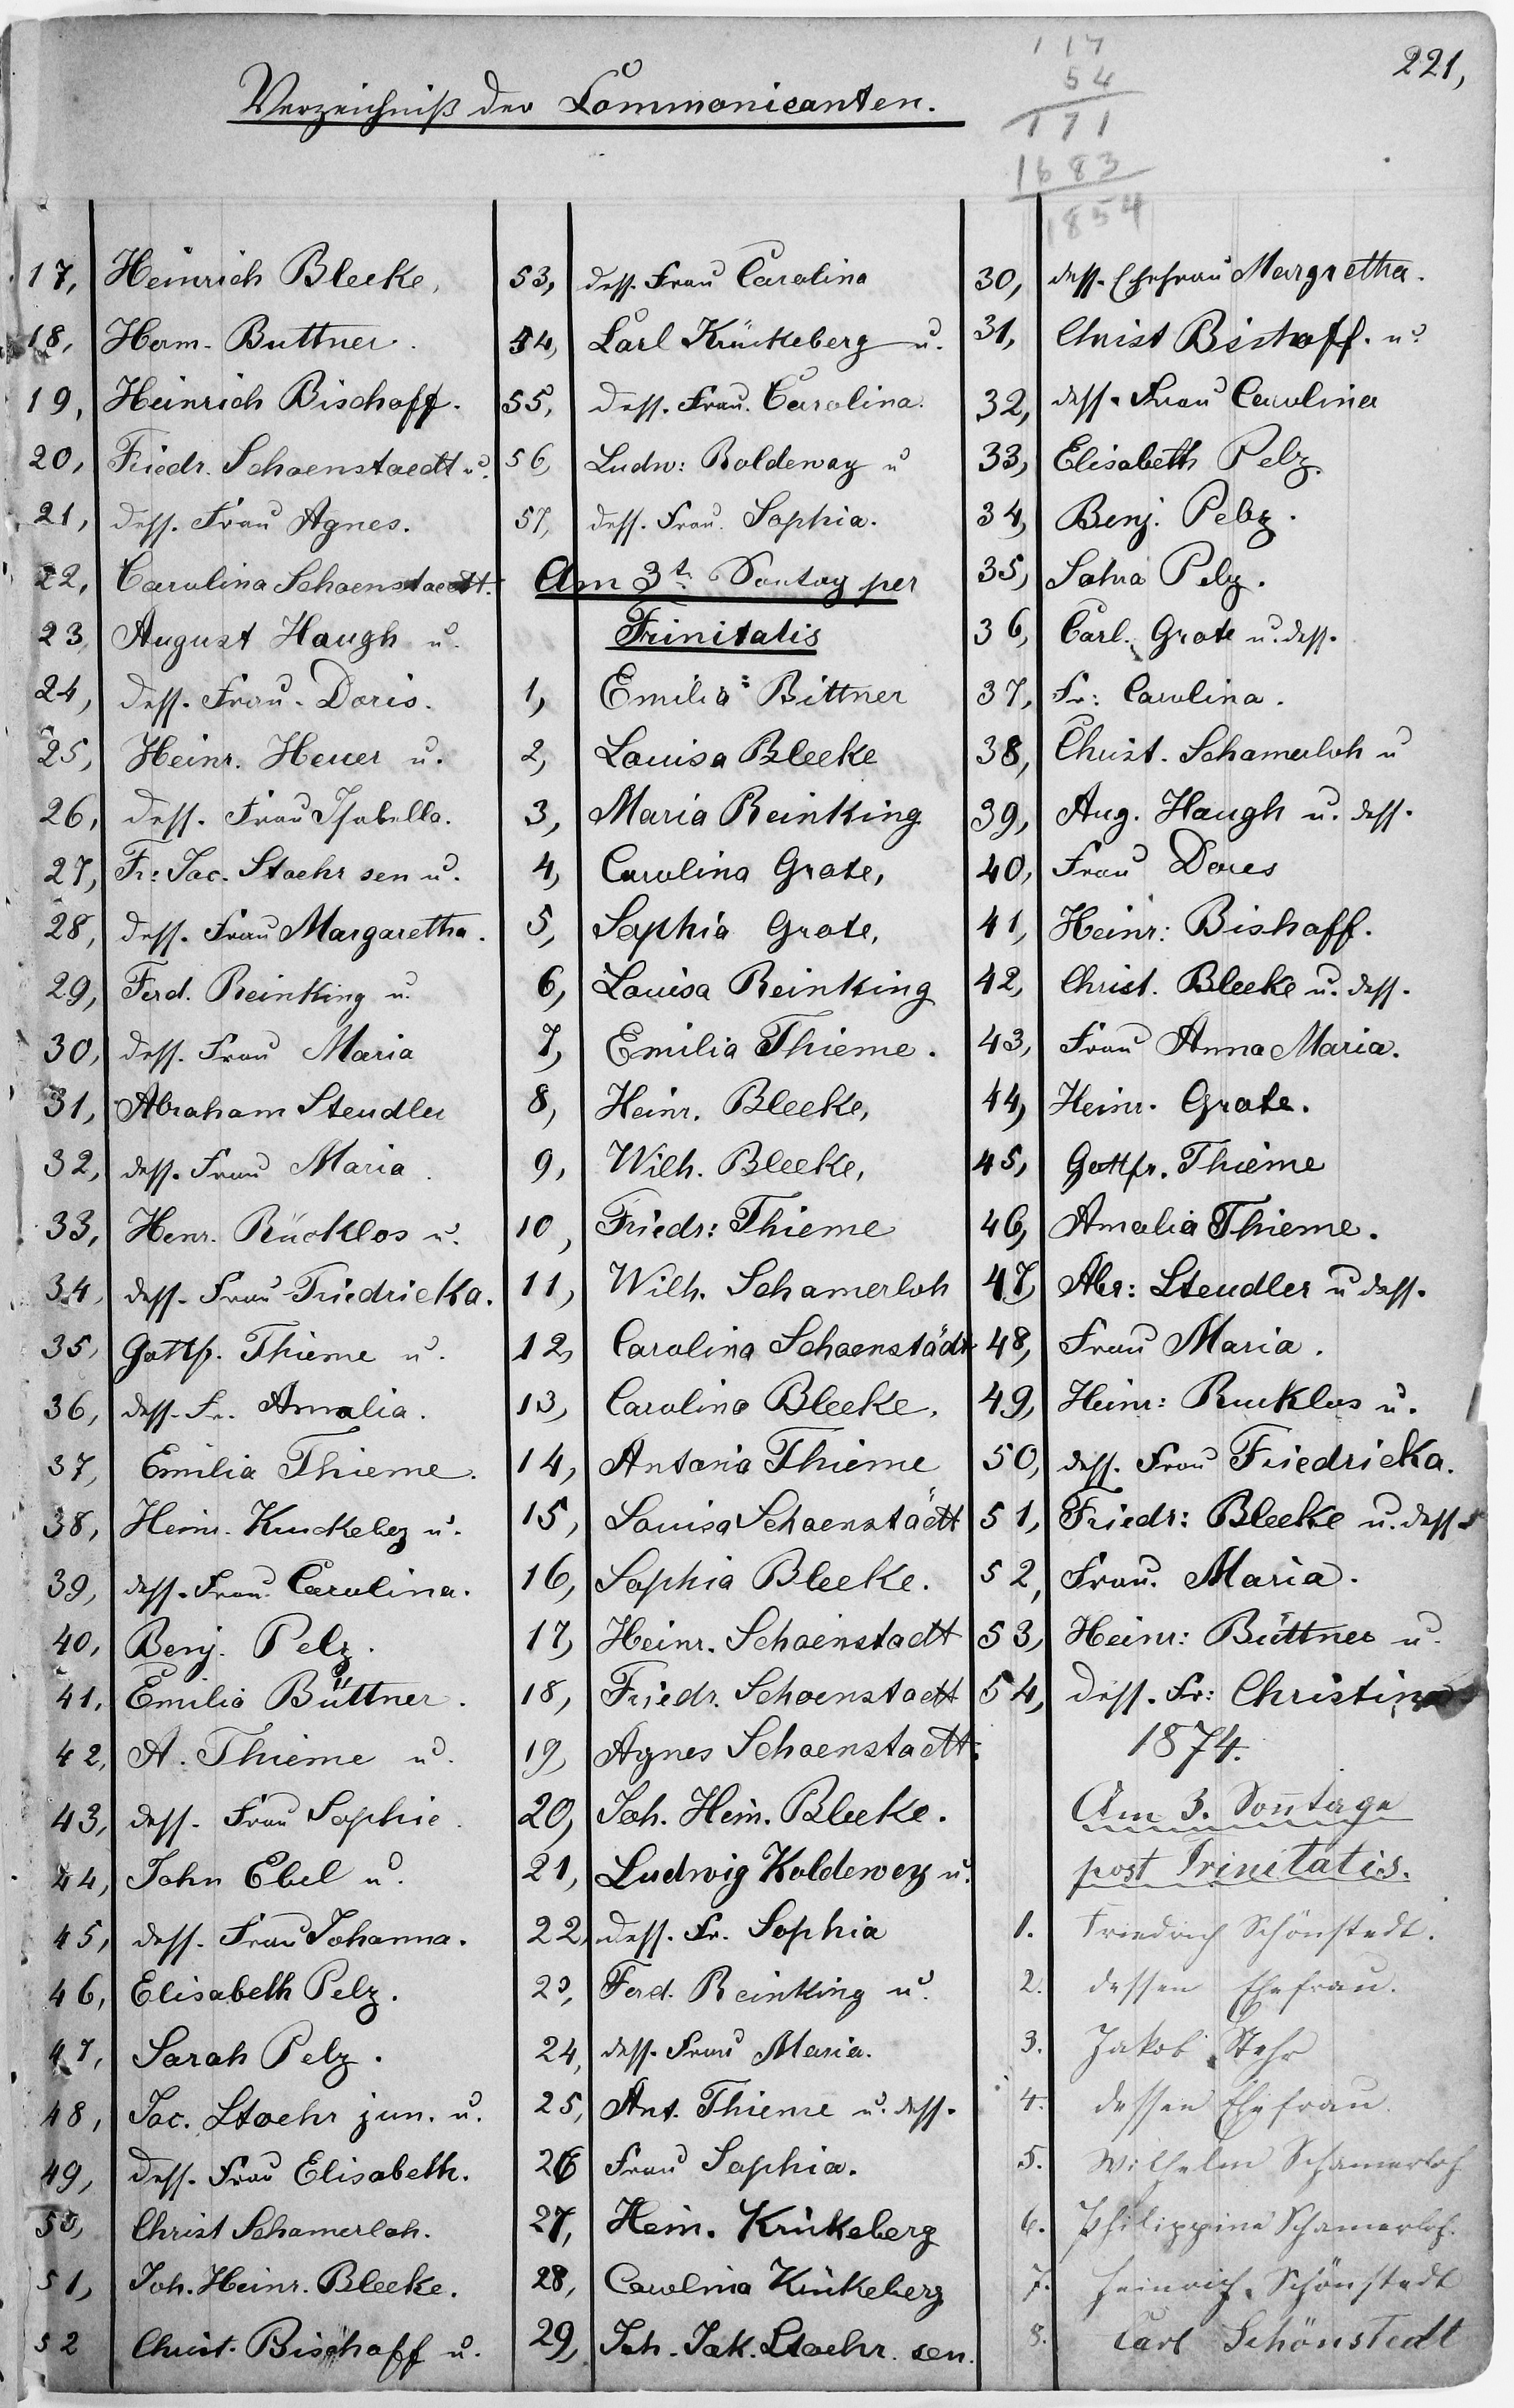 221,
117
54
171
1683
1854
Verzeichniß der Communicanten.
17, Heinrich Bleeke,
18, Herm. Buttner.
19, Heinrich Bischoff.
20, Friedr. Schoenstaedt u.
21, dess. Frau Agnes.
22, Carolina Schoenstaedt.
23, August Haugh u.
24, dess. Frau Doris.
25, Heinr. Heuer u.
26, dess. Frau Isabella.
27, Fr: Jac. Staehr sen u.
28, dess. Frau Margaretha.
29, Ferd. Reinking u.
30, dess. Frau Maria
31, Abraham Steudler
32, dess. Frau Maria
33, Henr. Rücklos u.
34, dess. Frau Friedricka.
35, Gottfr. Thieme u.
36, dess. Fr. Amalia.
37, Emilia Thieme.
38, Heinr. Kruckebeg u.
39, dess. Frau Carolina.
40, Benj. Pelz.
41, Emilia Büttner.
42, A. Thieme u.
43, dess. Frau Sophie
44, John Ebel u.
45, dess. Frau Johanna.
46, Elisabeth Pelz.
47, Sarah Pelz.
48, Jac. Staehr jun. u.
49, dess. Frau Elisabeth.
50, Christ Schamerloh.
51, Joh. Heinr. Bleeke.
52 Christ. Bischoff u.
53, dess. Frau Carolina
54, Carl Krückeberg u.
55, dess. Frau. Carolina.
56, Ludw: Koldeway u
57, dess. Frau. Sophia.
Am 3t. Sontag per
Trinitatis
1, Emilia Bittner
2, Louisa Bleeke
3, Maria Reinking
4, Carolina Grote,
5, Sophia Grote,
6, Louisa Reinking
7, Emilia Thieme.
8, Heinr. Bleeke,
9, Wilh. Bleeke,
10, Friedr: Thieme
11, Wilh. Schamerloh
12, Carolina Schoenstädt
13, Carolina Bleeke,
14, Antonia Thieme
15, Louisa Schoenstädt
16, Sophia Bleeke.
17, Heinr. Schoenstadt
18, Friedr. Schoenstadt
19, Agnes Schoenstadt
20, Joh. Hein. Bleeke.
21, Ludwig Koldewey u.
22, dess. Fr. Sophia
23, Ferd. Reinking u.
24, dess. Frau Maria.
25, Ant. Thieme u. dess.
26 Frau Sophia.
27, Hein. Krükeberg
28, Carolina Krükeberg
29, Joh. Jak. Staehr. sen.
30, dess. Ehefrau Margretha.
31, Christ Bischoff. u.
32, dess. Frau Carolina
33, Elisabeth Pelz.
34, Benj. Pelz.
35, Sahra Pelz.
36, Carl. Grote u. dess.
37, Fr: Carolina.
38, Christ. Schamerloh u
39, Aug. Haugh u. dess.
40, Frau Dores
41, Heinr: Bishoff.
42, Christ. Bleeke u. dess.
43, Frau Anna Maria.
44, Heinr. Grote.
45, Gottfr. Thieme
46, Amalia Thieme.
47, Abr: Steudler u dess.
48, Frau Maria.
49, Heinr: Rucklos u.
50, dess. Frau Friedricka.
51, Friedr: Bleeke u. dess
52, Frau. Maria.
53, Heinr: Büttner u.
54, dess. Fr: Christina
1874.
Am 3. Sonntage
post Trinitatis.
1. Friedrich Schönstedt.
2. dessen Ehefrau.
3. Jakob Stehr
4. dessen Ehefrau
5. Wilhelm Schamerloh
6. Philippine Schamerloh.
7. Heinrich Schönstedt
8. Carl Schönstedt